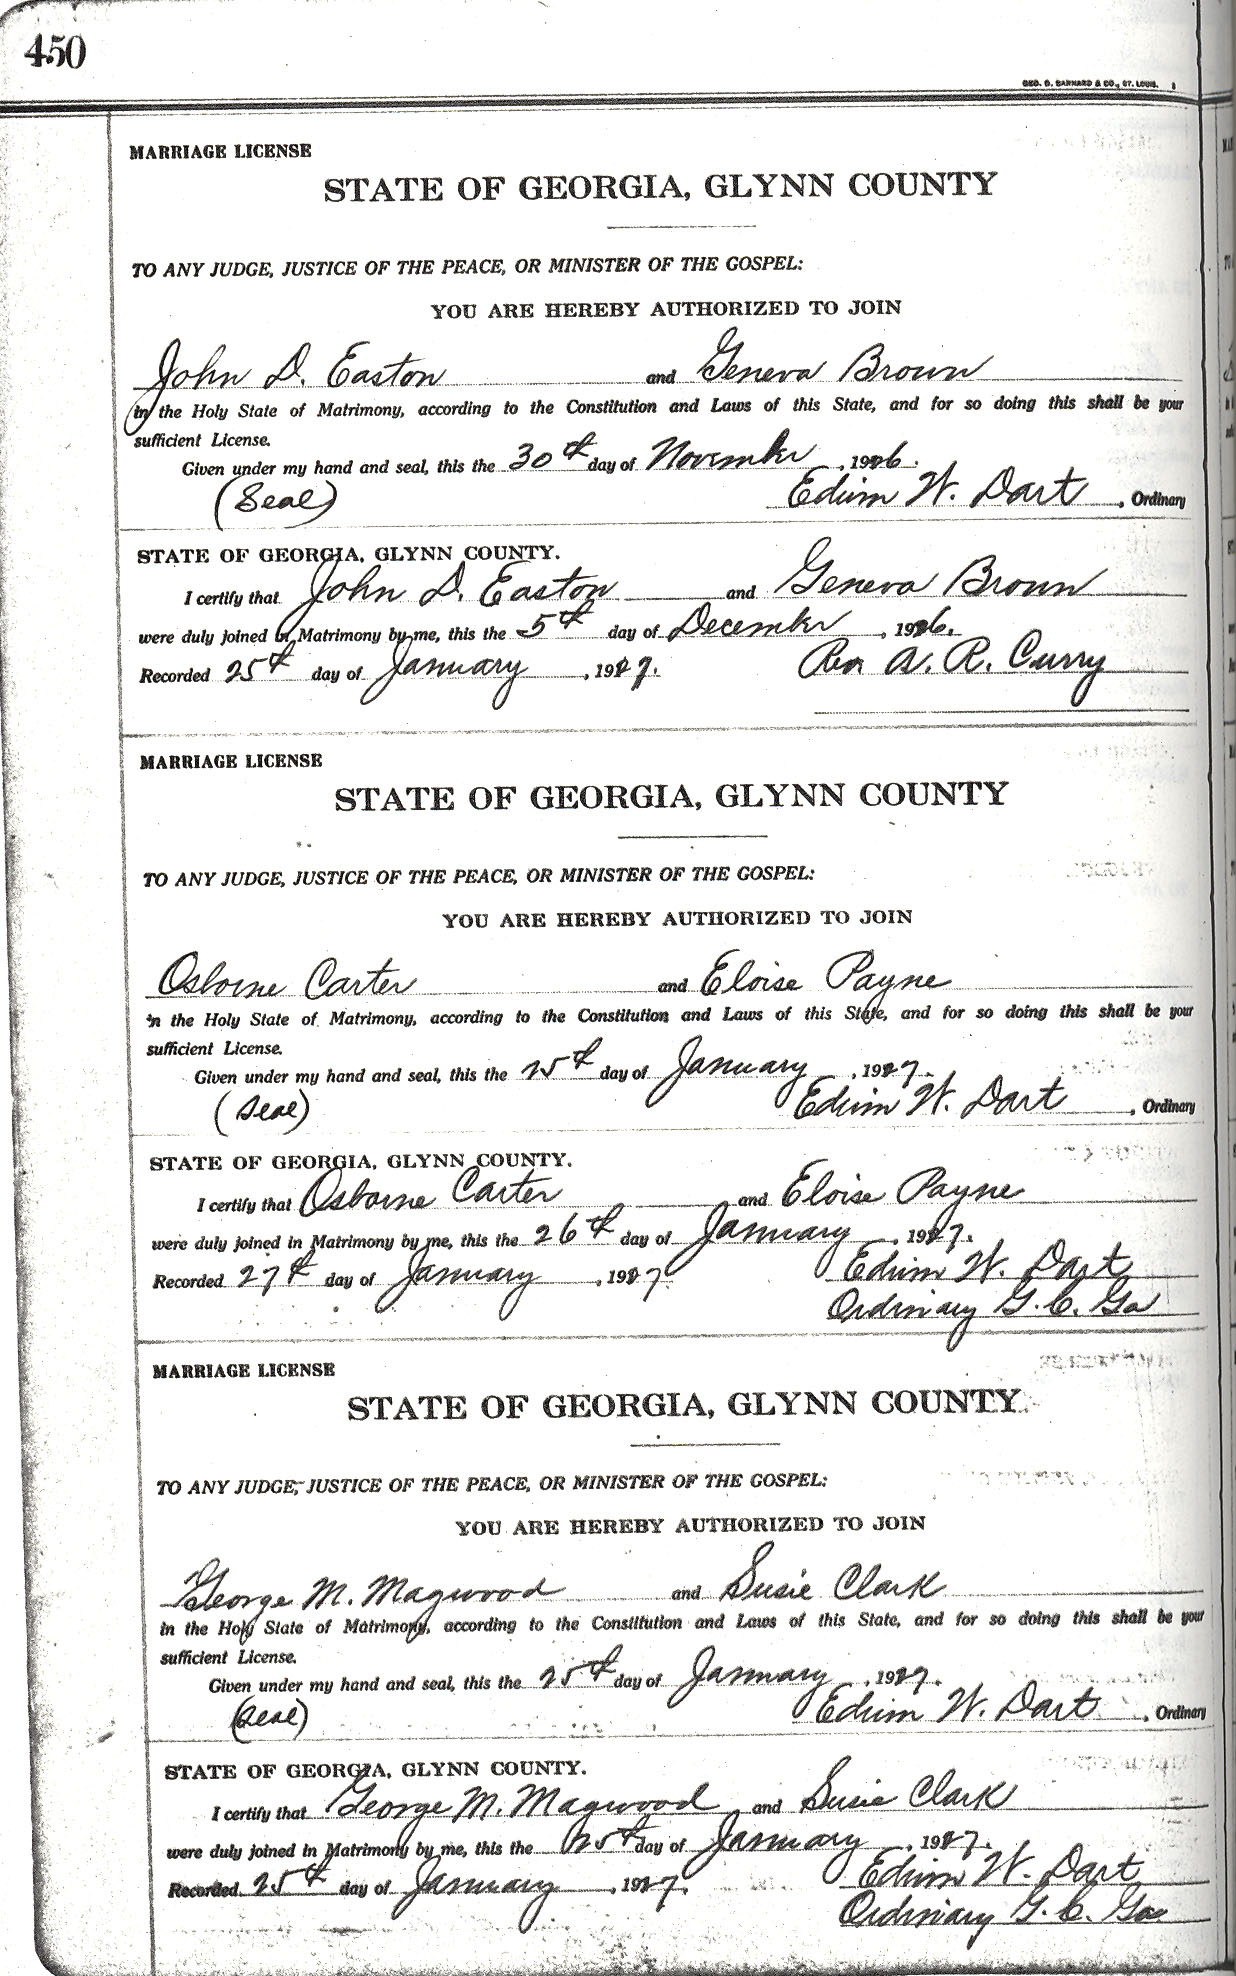 450
GEO. D. BARNARD & CO., ST. LOUIS.
MARRIAGE LICENSE
STATE OF GEORGIA, GLYNN COUNTY
TO ANY JUDGE, JUSTICE OF THE PEACE, OR MINISTER OF THE GOSPEL:
YOU ARE HEREBY AUTHORIZED TO JOIN
John D. Easton and Geneva Brown
in the Holy State of Matrimony, according to the Constitution and Laws of this State, and for so doing this shall be your
sufficient License.
Given under my hand and seal, this the 30th day of November, 1926.
(Seal) Edwin W. Dart, Ordinary
STATE OF GEORGIA, GLYNN COUNTY.
I certify that John D. Easton and Geneva Brown
were duly joined in Matrimony by me, this the 5th day of December, 1926.
Recorded 25th day of January, 1927. Rev A. R. Curry
MARRIAGE LICENSE
STATE OF GEORGIA, GLYNN COUNTY
TO ANY JUDGE, JUSTICE OF THE PEACE, OR MINISTER OF THE GOSPEL:
YOU ARE HEREBY AUTHORIZED TO JOIN
Osborne Carter and Eloise Payne
in the Holy State of Matrimony, according to the Constitution and Laws of this State, and for so doing this shall be your
sufficient License.
Given under my hand and seal, this the 25th day of January, 1927.
(Seal) Edwin W. Dart, Ordinary
STATE OF GEORGIA, GLYNN COUNTY.
I certify that Osborne Carter and Eloise Payne
were duly joined in Matrimony by me, this the 26th day of January, 1927.
Recorded 27th day of January, 1927. Edwin W. Dart
Ordinary G. C. Ga
MARRIAGE LICENSE
STATE OF GEORGIA, GLYNN COUNTY.
TO ANY JUDGE, JUSTICE OF THE PEACE, OR MINISTER OF THE GOSPEL:
YOU ARE HEREBY AUTHORIZED TO JOIN
George M. Magwood and Susie Clark
in the Holy State of Matrimony, according to the Constitution and Laws of this State, and for so doing this shall be your
sufficient License.
Given under my hand and seal, this the 25th day of January, 1927.
(Seal) Edwin W. Dart, Ordinary
STATE OF GEORGIA, GLYNN COUNTY.
I certify that George M. Magwood and Susie Clark
were duly joined in Matrimony by me, this the 25th day of January, 1927.
Recorded 25th day of January, 1927. Edwin W. Dart
Ordinary G. C. Ga